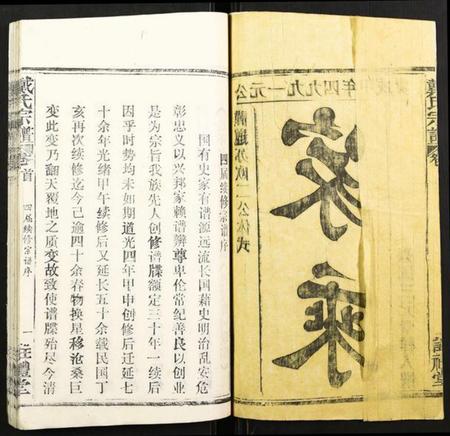 公元一九九四年
家乘
戴氏宗谱
四届续修宗谱序
国有史家有谱源远流长国藉史明治乱安危
彰忠义以兴邦家赖谱辨尊卑伦常纪善良以创业
是为宗旨我族先人创修谱牒额定三十年一续后
因乎时势均未如期道光四年甲申创修后迁延七
十余年光绪甲午续修后又延长五十余载民国丁
亥再次续修迄今已逾四十余春物换星移沧桑巨
变此变乃翻天覆地之质变故致使谱牒殆尽今清
戴氏宗谱
卷首
四届续修宗谱序
一
注礼堂